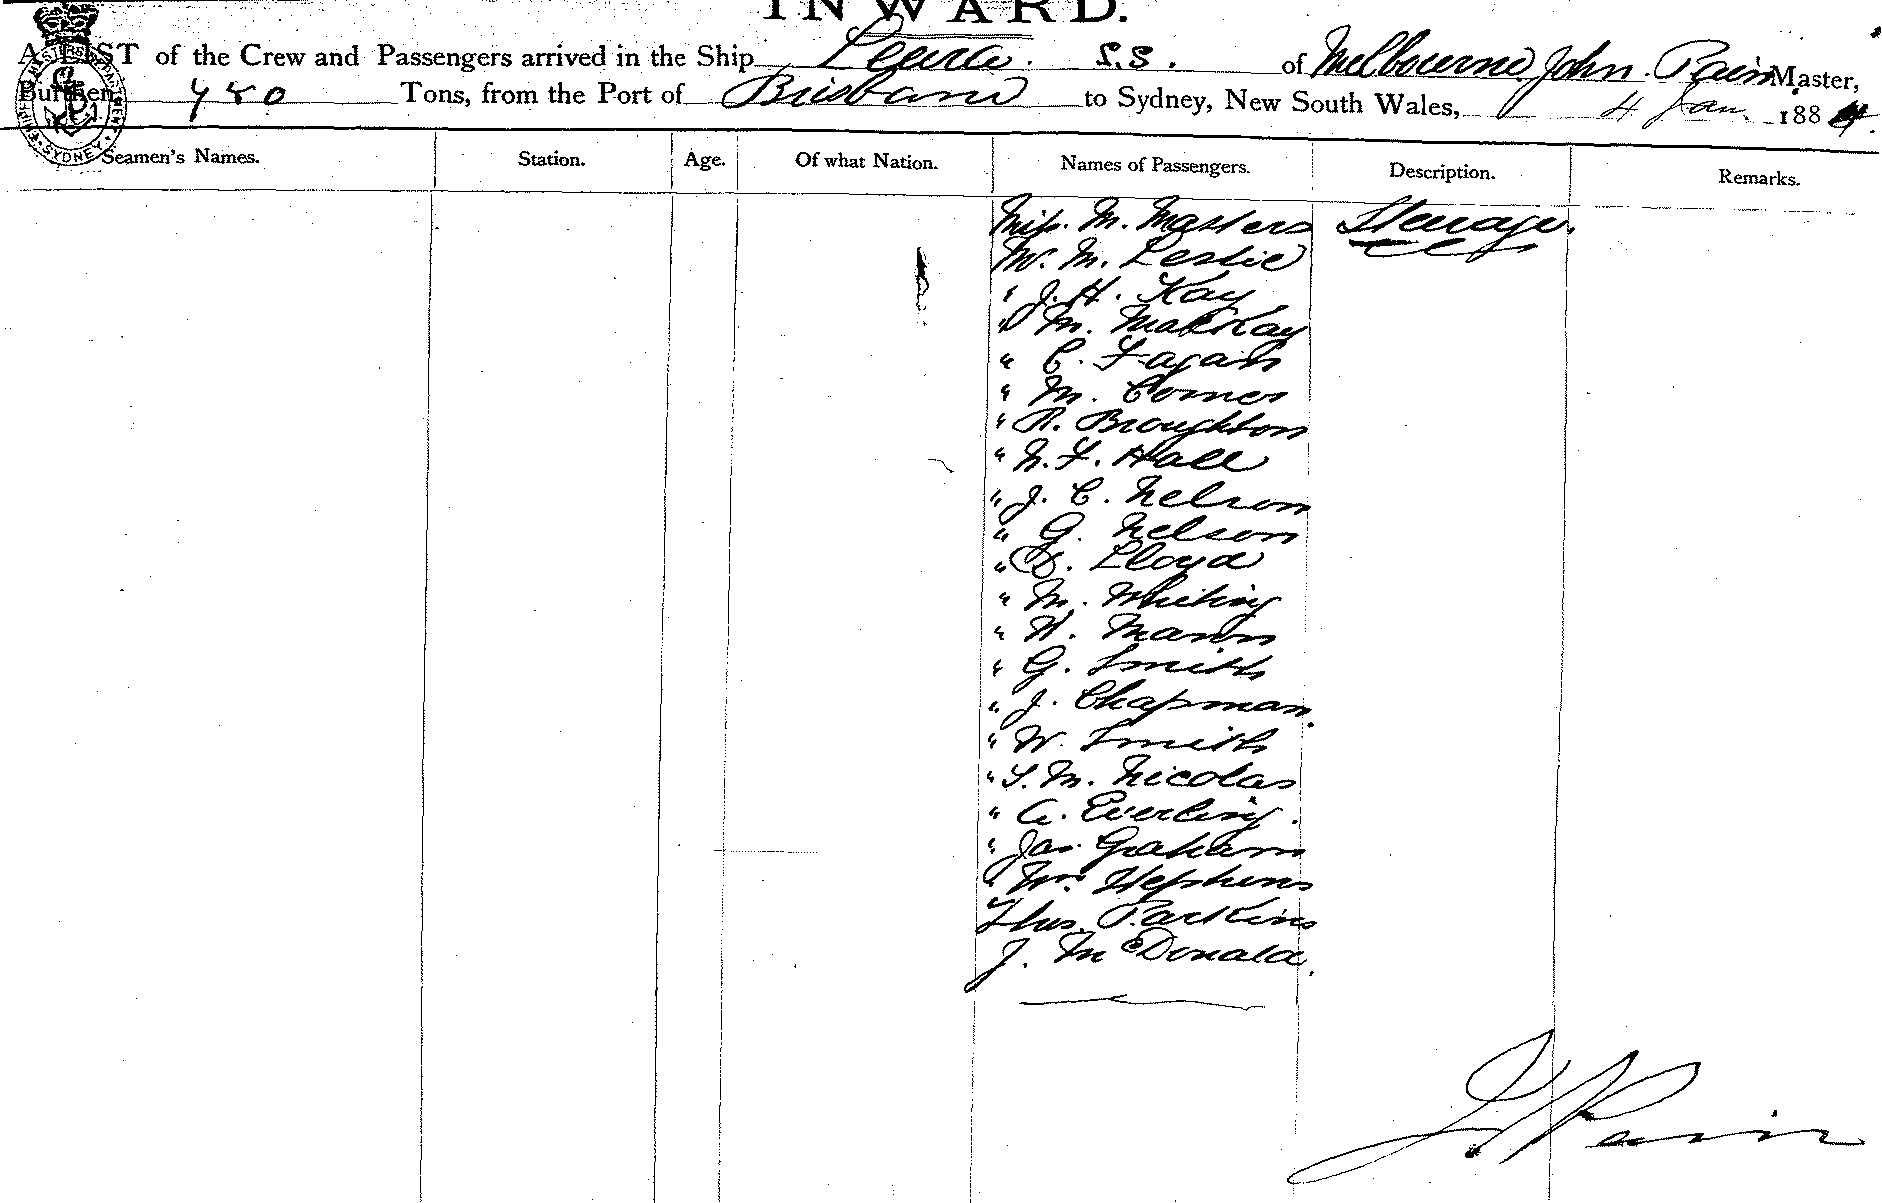 INWARD.
A LIST of the Crew and Passengers arrived in the Ship Leura. S.S. of Melbourne John Pain Master,
Burthen 480 Tons, from the Port of Brisbane to Sydney, New South Wales, 4 Jan. 1884.
Seamen's Names. Station. Age. Of what Nation. Names of Passengers. Description. Remarks.
Miss. M. Masters Steerage.
M. Leslie
" J. H. Kay
" M. MacKay
" C. Fagan
" M. Comes
" R. Broughton
" F. Hall
" J. C. Nelson
" G. Nelson
" Lloyd
" M. Whiting
" H. Mann
" G. Smith
" J. Chapman.
" W. Smith
" S. M. Nicolas
" A. Everling.
" Jas. Graham
" Wm Stephens
Thos. Parkins
J. McDonald.
J Pain
SYDNEY